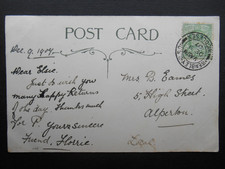 POST CARD
Dec. 9. 1907.
Dear Elsie.
Just to wish you
many Happy Returns
of the day. Thanks much
for P.
Your Sincere
Friend, Florrie.
Miss B. Eames
5, High Street.
Alperton.